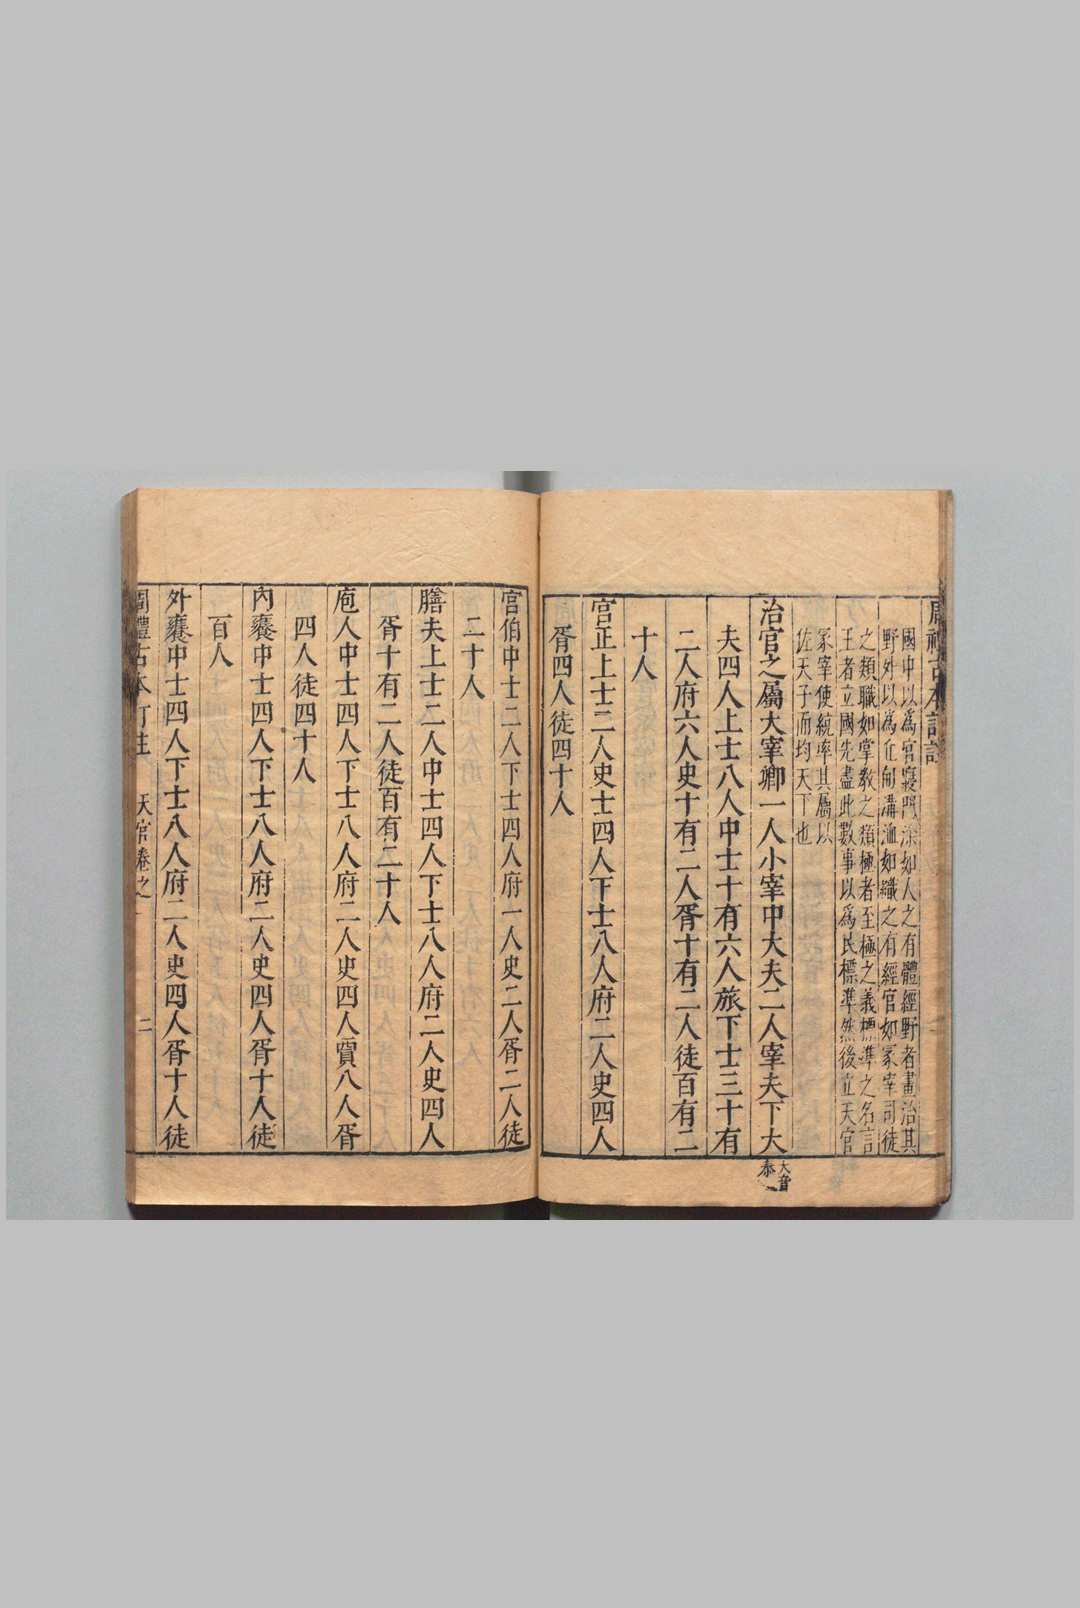 國中以爲宮寢門涂如人之有體經野者畫治其
野外以爲丘甸溝洫如織之有經官如冢宰司徒
之類職如掌教之類極者至極之義標準之名言
王者立國先盡此數事以爲民標準然後立天官
冢宰使統率其屬以
佐天子而均天下也
治官之屬大宰卿一人小宰中大夫二人宰夫下大
大音
泰
夫四人上士八人中士十有六人旅下士三十有
二人府六人史十有二人胥十有二人徒百有二
十人
宮正上士二人史士四人下士八人府二人史四人
胥四人徒四十人
宮伯中士二人下士四人府一人史二人胥二人徒
二十人
膳夫上士二人中士四人下士八人府二人史四人
胥十有二人徒百有二十人
庖人中士四人下士八人府二人史四人賈八人胥
四人徒四十人
內饔中士四人下士八人府二人史四人胥十人徒
百人
外饔中士四人下士八人府二人史四人胥十人徒
周禮古本訂註 天官卷之一 二